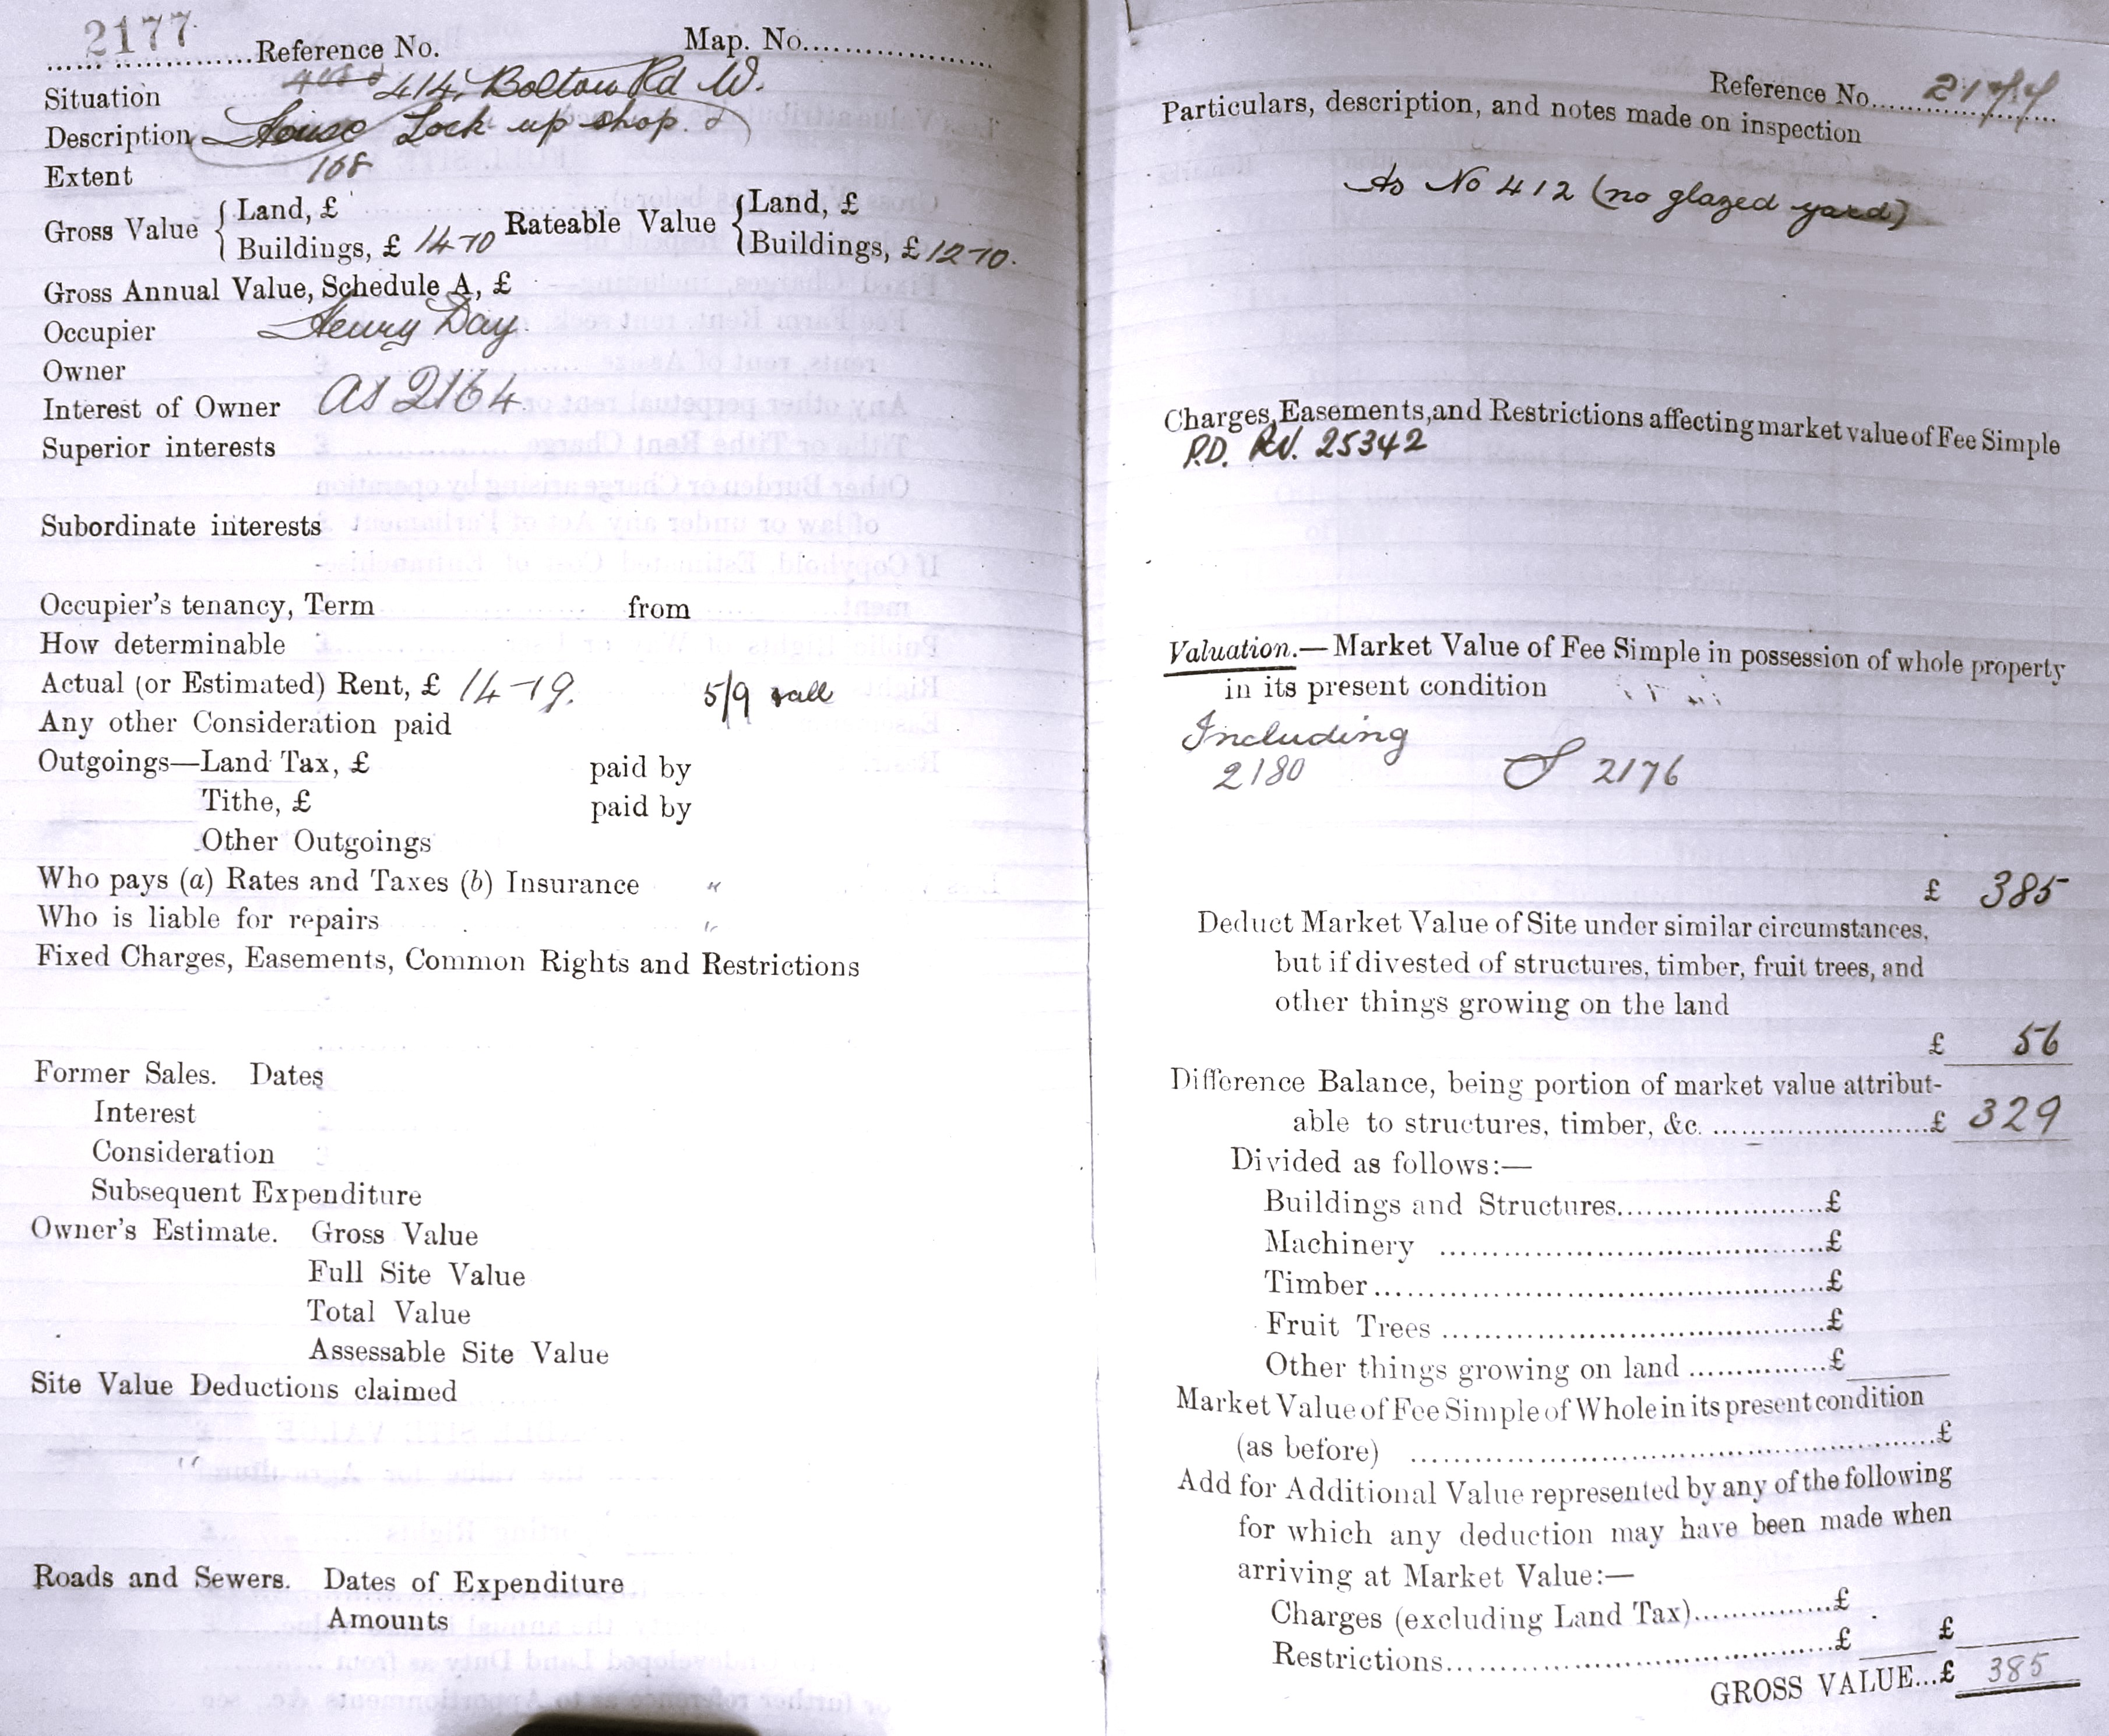 2177
Reference No. Map. No.
Situation 414, Bolton Rd W.
Description House Lock up shop.
Extent 168
Gross Value { Land, £ Rateable Value { Land, £
Buildings, £ 14-10 Buildings, £ 12-10.
Gross Annual Value, Schedule A, £
Occupier Henry Day.
Owner
Interest of Owner as 2164.
Superior interests
Subordinate interests
Occupier's tenancy, Term from
How determinable
Actual (or Estimated) Rent, £ 14-19. 5/9 
Any other Consideration paid
Outgoings—Land Tax, £ paid by
Tithe, £ paid by
Other Outgoings
Who pays (a) Rates and Taxes (b) Insurance "
Who is liable for repairs "
Fixed Charges, Easements, Common Rights and Restrictions
Former Sales. Dates
Interest
Consideration
Subsequent Expenditure
Owner's Estimate. Gross Value
Full Site Value
Total Value
Assessable Site Value
Site Value Deductions claimed
Roads and Sewers. Dates of Expenditure
Amounts
Reference No. 2177
Particulars, description, and notes made on inspection
As No 412 (no glazed yard)
Charges, Easements, and Restrictions affecting market value of Fee Simple
P.D. RV. 25342
Valuation.—Market Value of Fee Simple in possession of whole property
in its present condition
Including
2180 2176
£ 385
Deduct Market Value of Site under similar circumstances,
but if divested of structures, timber, fruit trees, and
other things growing on the land
£ 56
Difference Balance, being portion of market value attribut-
able to structures, timber, &c. £ 329
Divided as follows:—
Buildings and Structures £
Machinery £
Timber £
Fruit Trees £
Other things growing on land £
Market Value of Fee Simple of Whole in its present condition
(as before) £
Add for Additional Value represented by any of the following
for which any deduction may have been made when
arriving at Market Value:—
Charges (excluding Land Tax) £
Restrictions £ £
GROSS VALUE...£ 385